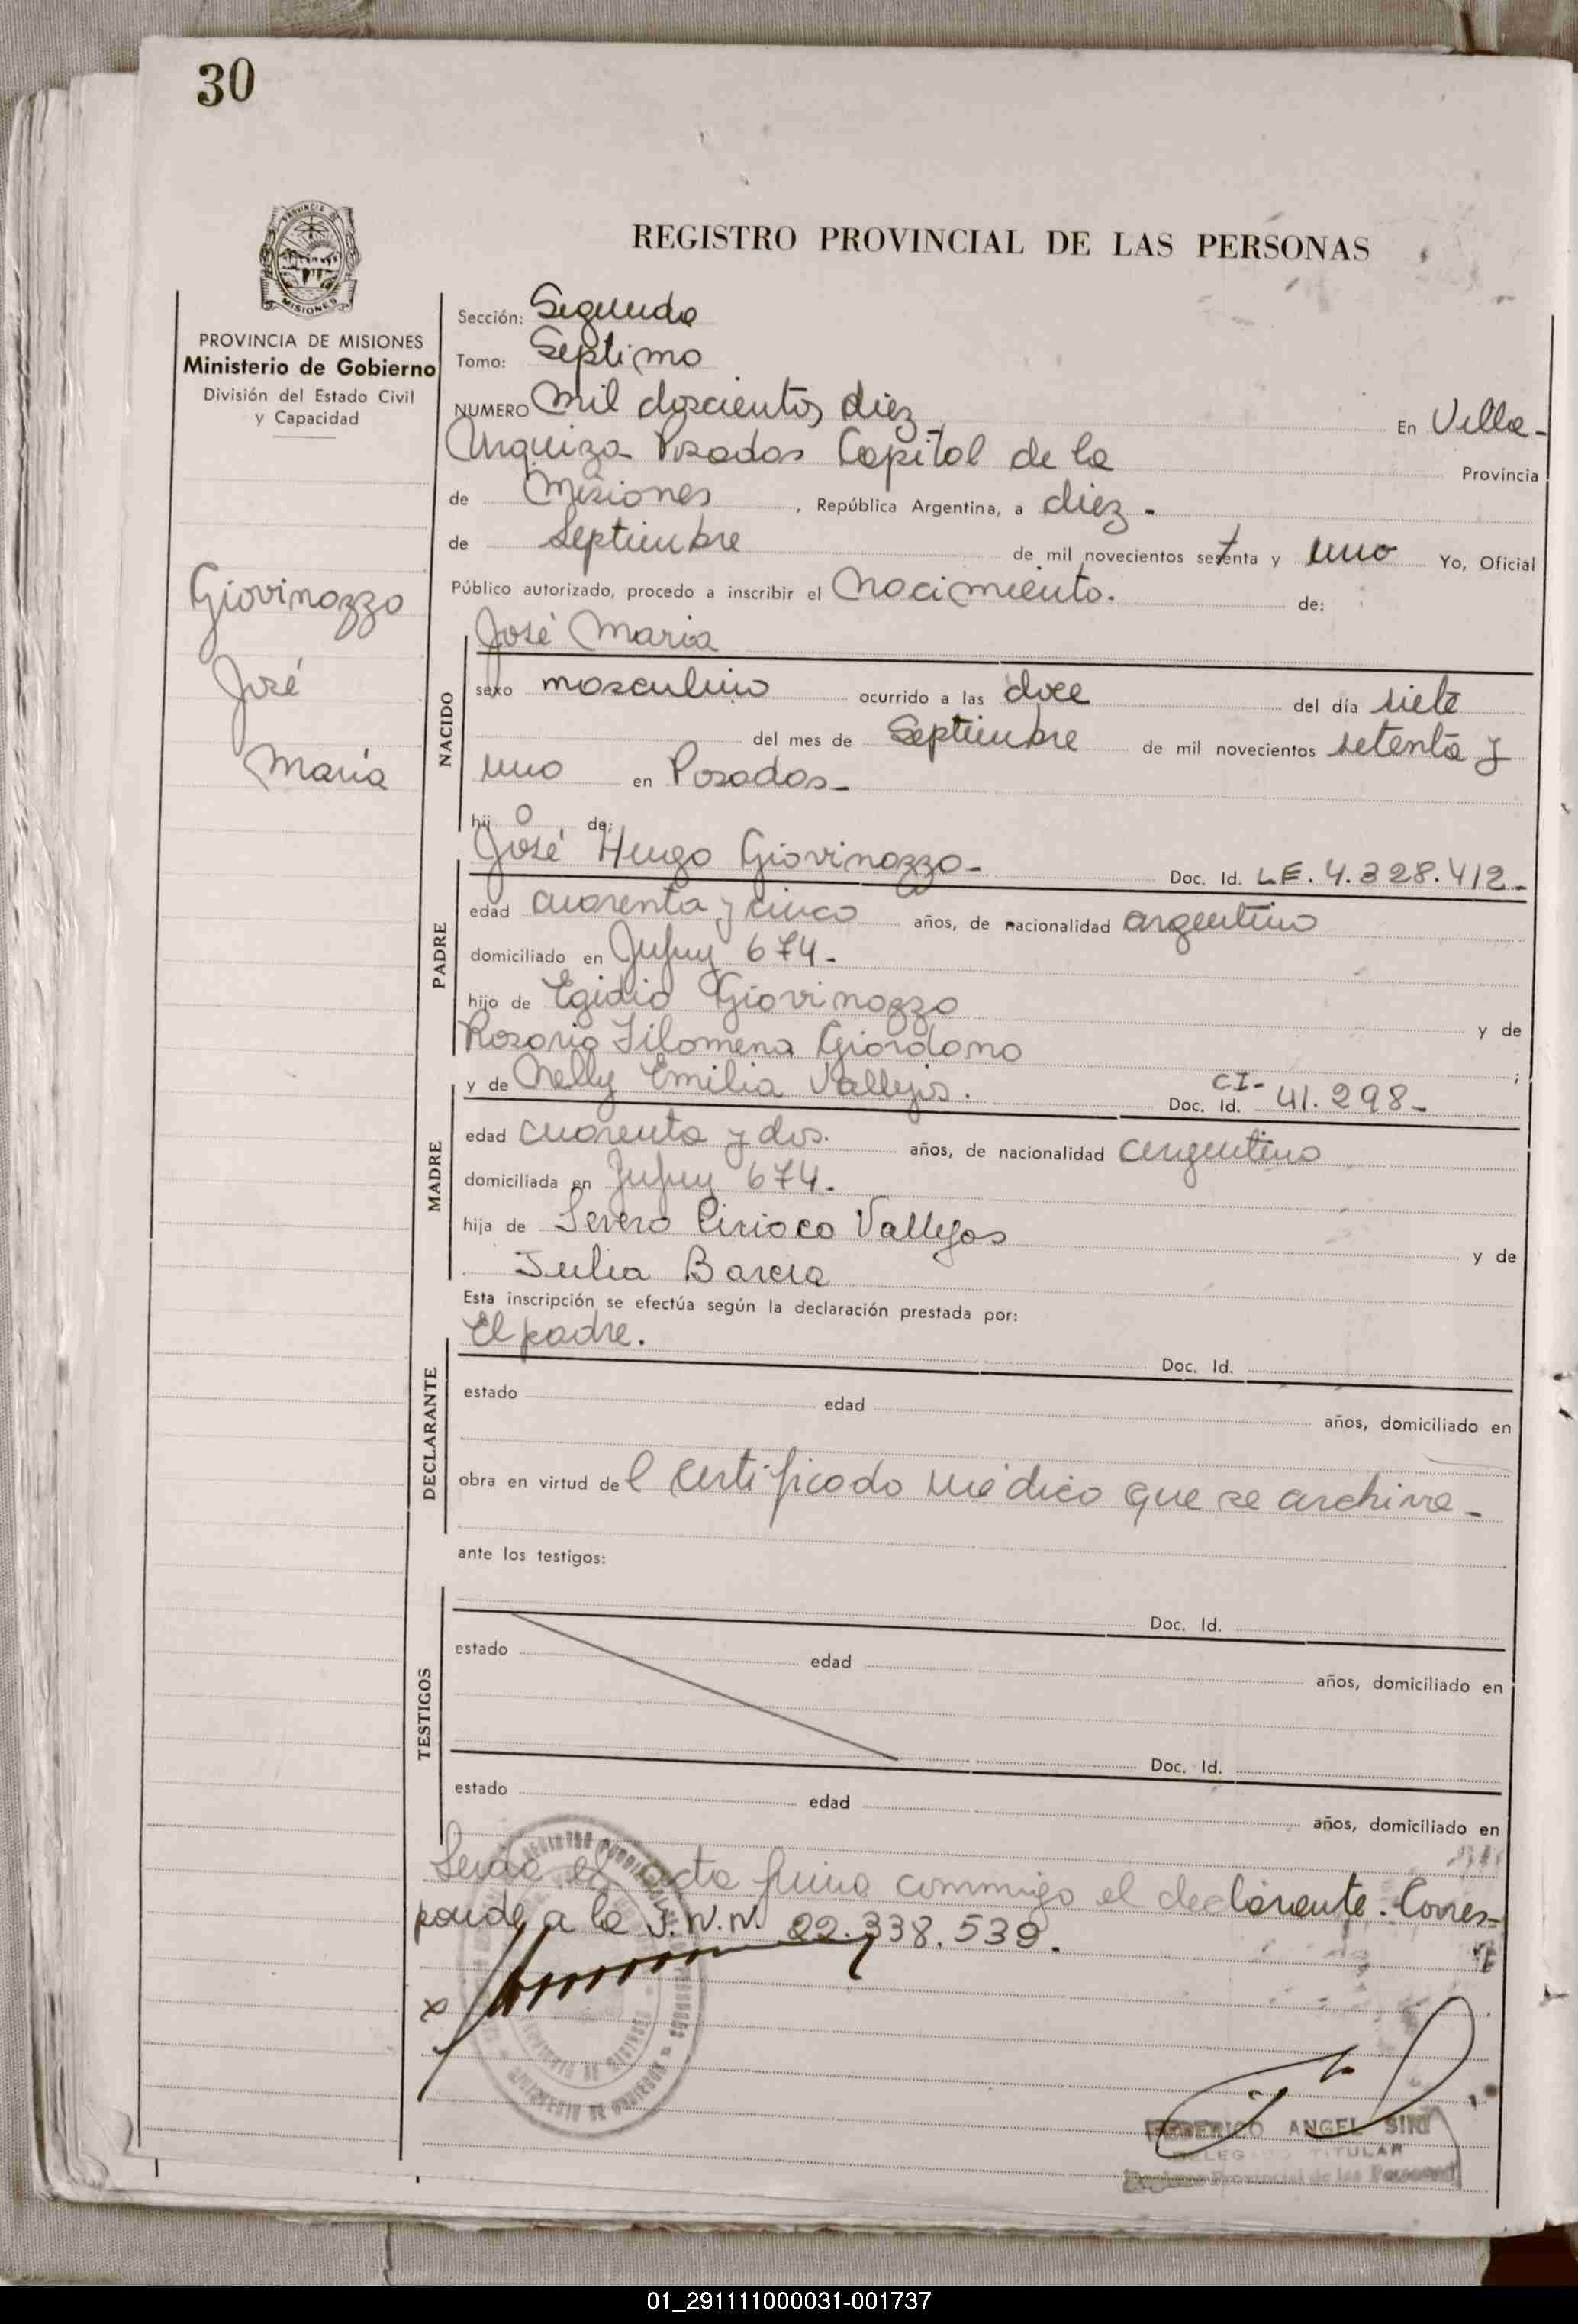 30
PROVINCIA DE
MISIONES
REGISTRO PROVINCIAL DE LAS PERSONAS
PROVINCIA DE MISIONES
Ministerio de Gobierno
División del Estado Civil
y Capacidad
Giovinazzo
José
María
Sección: Segunda
Tomo: Septimo
NUMERO Mil doscientos diez En Villa-
Urquiza Posadas Capital de la Provincia
de Misiones, República Argentina, a diez -
de Septiembre de mil novecientos setenta y uno Yo, Oficial
Público autorizado, procedo a inscribir el Nacimiento. de:
José Maria
NACIDO
sexo masculino ocurrido a las doce del día siete
del mes de Septiembre de mil novecientos setenta y
uno en Posadas-
hij o de:
José Hugo Giovinazzo- Doc. Id. LE. 4.328.412-
PADRE
edad cuarenta y cinco años, de nacionalidad argentino
domiciliado en Jujuy 674-
hijo de Egidio Giovinazzo y de
Rosario Filomena Giordano ;
y de Nelly Emilia Vallejos. Doc. Id. CI- 41.298-
MADRE
edad cuarenta y dos. años, de nacionalidad argentino
domiciliada en Jujuy 674-
hija de Severo Ciriaco Vallejos y de
Julia Barcia
Esta inscripción se efectúa según la declaración prestada por:
El padre. Doc. Id.
DECLARANTE
estado edad años, domiciliado en
obra en virtud de l certificado médico que se archiva-
ante los testigos:
Doc. Id.
TESTIGOS
estado edad años, domiciliado en
Doc. Id.
estado edad años, domiciliado en
Leida el acta firma conmigo el declarante. Corres-
ponde a la J.N.N. 22.338.539.
x
FEDERICO ANGEL SIRI
DELEGADO TITULAR
Registro Provincial de las Personas
01_291111000031-001737